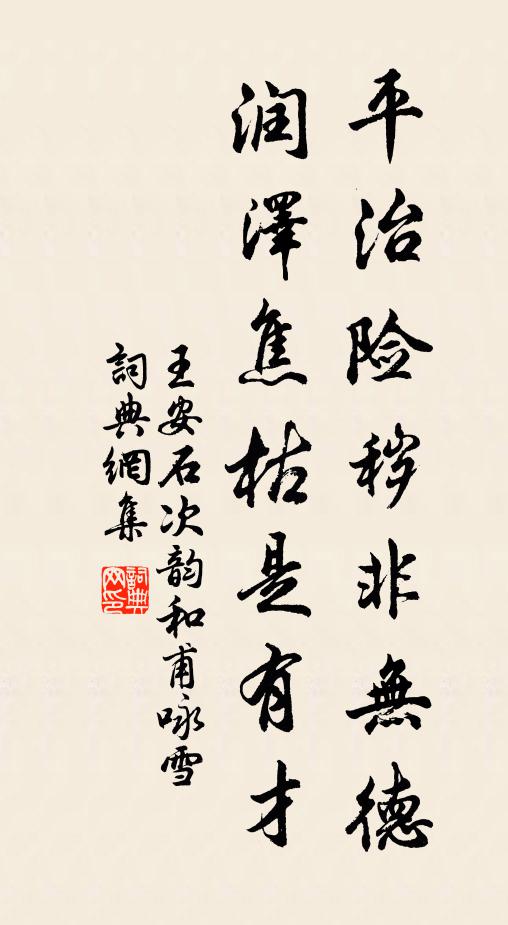 平治险秽非無德
润澤焦枯是有才
王安石次韵和甫咏雪
詞典網集
詞典网印